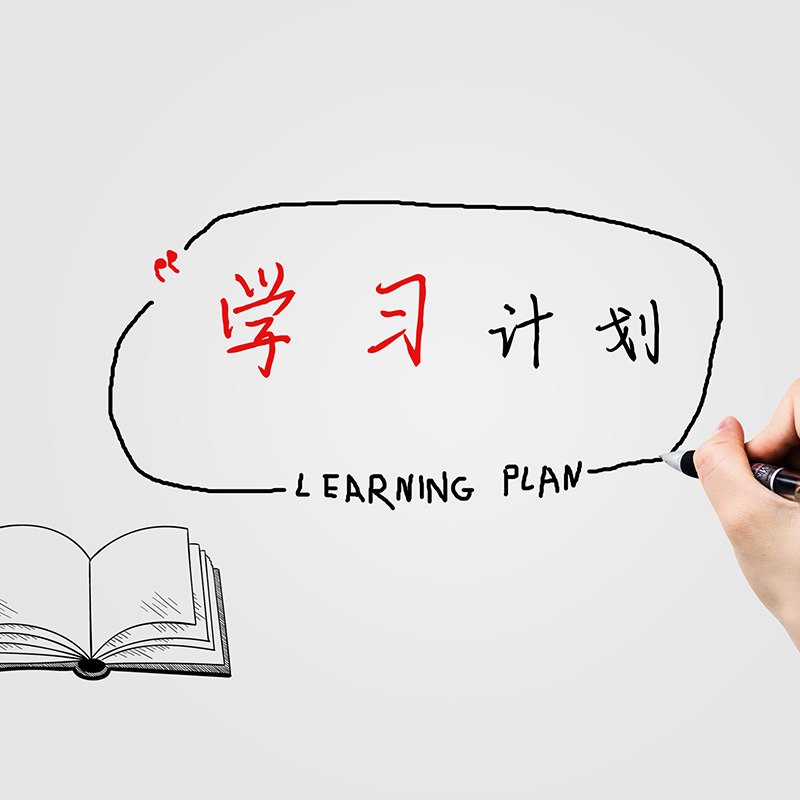 学习计划
LEARNING PLAN